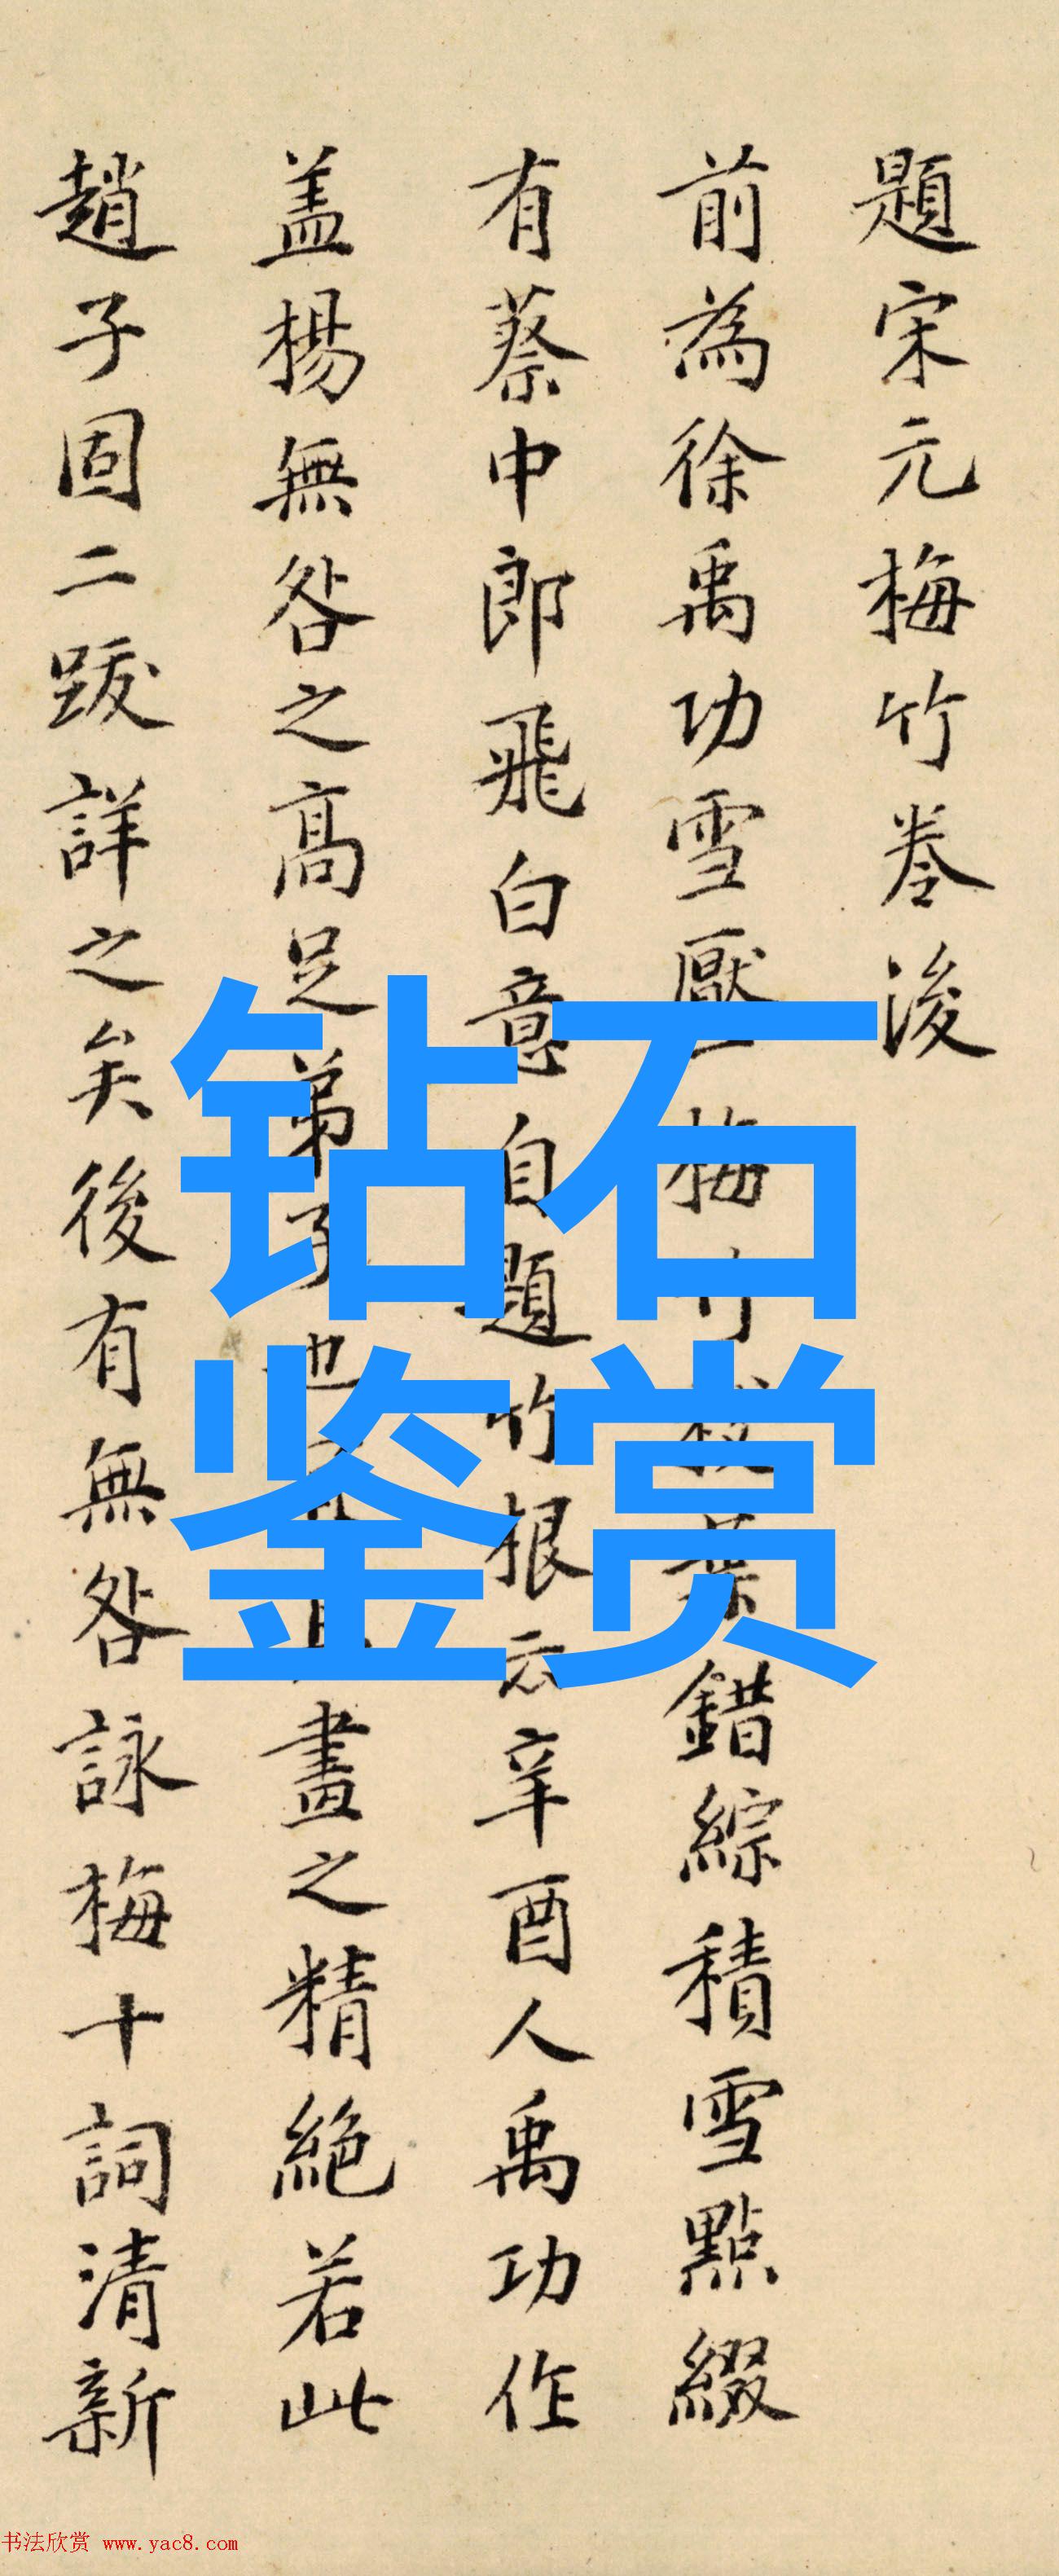 題宋元梅竹卷後
前為徐禹功雪壓梅竹枝葉錯綜積雪點綴
有蔡中郎飛白意自題竹根云辛酉人禹功作
盖楊無咎之高足弟子也畫之精絶若此
趙子固二跋詳之矣後有無咎詠梅十詞清新
钻石
鉴赏
书法欣赏 www.yac8.com